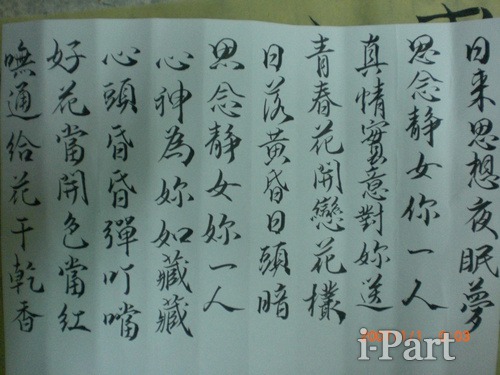 日来思想夜眠夢
思念靜女你一人
真情實意對妳送
青春花開戀花欉
日落黃昏日頭暗
思念靜女妳一人
心神為妳如藏藏
心頭昏昏彈叮噹
好花當開色當红
嘸通給花干乾香
i-Part